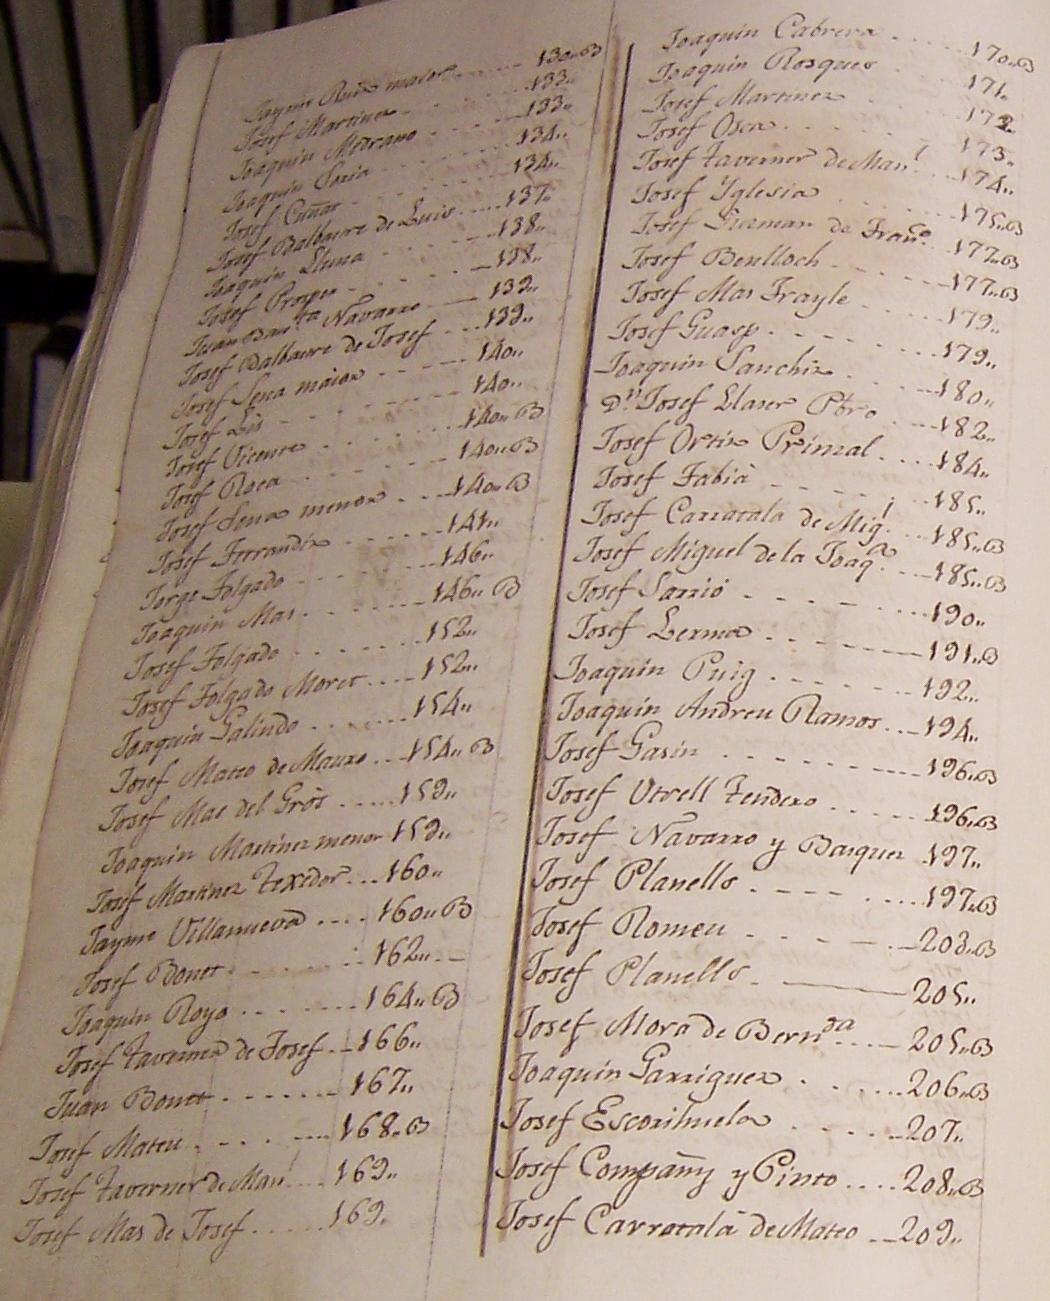 Jayme Ruiz maior 130.. B
Josef Martinez 133..
Joaquin Medrano 133..
Joaquin Soria 134..
Josef Cañat 134..
Josef Balbastre de Luis 137..
Joaquin Lluna 138..
Josef Prosper 138..
Juan Bau.ta Navarro 139..
Josef Balbastre de Josef 139..
Josef Sena maior 140..
Josef Lis 140..
Josef Vicente 140.. B
Josef Roca 140.. B
Josef Sena menor 140.. B
Josef Ferrandiz 141..
Jorge Folgado 146..
Joaquin Mas 146.. B
Josef Folgado 152..
Josef Folgado Moret 152..
Joaquin Galindo 154..
Josef Mateo de Mauro 154.. B
Josef Mas del Gros 159..
Joaquin Martinez menor 159..
Josef Martinez Texedor 160..
Jayme Villanueva 160.. B
Josef Bonet 162..
Joaquin Royo 164.. B
Josef Taverner de Josef 166..
Juan Bonet 167..
Josef Mateu 168.. B
Josef Taverner de Man.l 169..
Josef Mas de Josef 169..
Joaquin Cabrera 170.. B
Joaquin Rosques 171..
Josef Martinez 172..
Josef Osca 173..
Josef Taverner de Man.l 174..
Josef Yglesia 175.. B
Josef Guzman de Fran.co 177.. B
Josef Benlloch 177.. B
Josef Mas Frayle 179..
Josef Guasp 179..
Joaquin Sanchiz 180..
Dn. Josef Llaser Pbro. 182..
Josef Ortiz Prinzal 184..
Josef Fabià 185..
Josef Carratalà de Mig.l 185.. B
Josef Miguel de la Joaq.a 185.. B
Josef Sarriò 190..
Josef Lerma 191.. B
Joaquin Puig 192..
Joaquin Andreu Ramos 194..
Josef Garin 196.. B
Josef Utrell Tendero 196.. B
Josef Navarro y Basquez 197..
Josef Planells 197.. B
Josef Romeu 203.. B
Josef Planells 205..
Josef Mora de Bern.da 205.. B
Joaquin Garriguez 206.. B
Josef Escorihuela 207..
Josef Compañy y Pinto 208.. B
Josef Carratalà de Mateo 209..